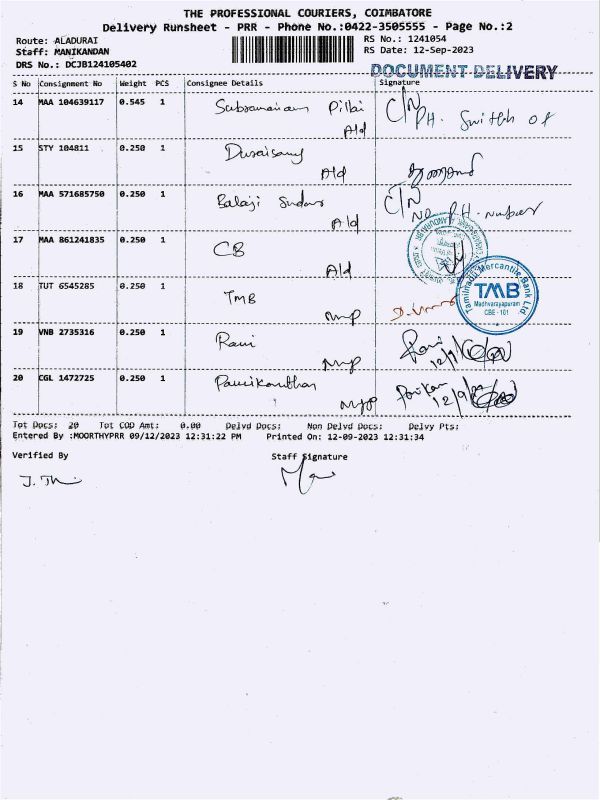 THE PROFESSIONAL COURIERS, COIMBATORE
Delivery Runsheet - PRR - Phone No.:0422-3505555 - Page No.:2
Route: ALADURAI RS No.: 1241054
Staff: MANIKANDAN RS Date: 12-Sep-2023
DRS No.: DCJB124105402
DOCUMENT DELIVERY
S No Consignment No Weight PCS Consignee Details Signature
14 MAA 104639117 0.545 1 Subramaniam Pillai C/N
Ald PH. Switch of
15 STY 104811 0.250 1 Duraisamy
Ald
16 MAA 571685750 0.250 1 Balaji C/N
Ald No PH. number
17 MAA 861241835 0.250 1 CB
Ald
18 TUT 6545285 0.250 1 TMB
mp
Tamilnadu Mercantile Bank Ltd.
TMB
Madhvarayapuram
CBE - 101
19 VNB 2735316 0.250 1 Rani
mp
20 CGL 1472725 0.250 1
12/9/
Tot Docs: 20 Tot COD Amt: 0.00 Delvd Docs: Non Delvd Docs: Delvy Pts:
Entered By :MOORTHYPRR 09/12/2023 12:31:22 PM Printed On: 12-09-2023 12:31:34
Verified By Staff Signature